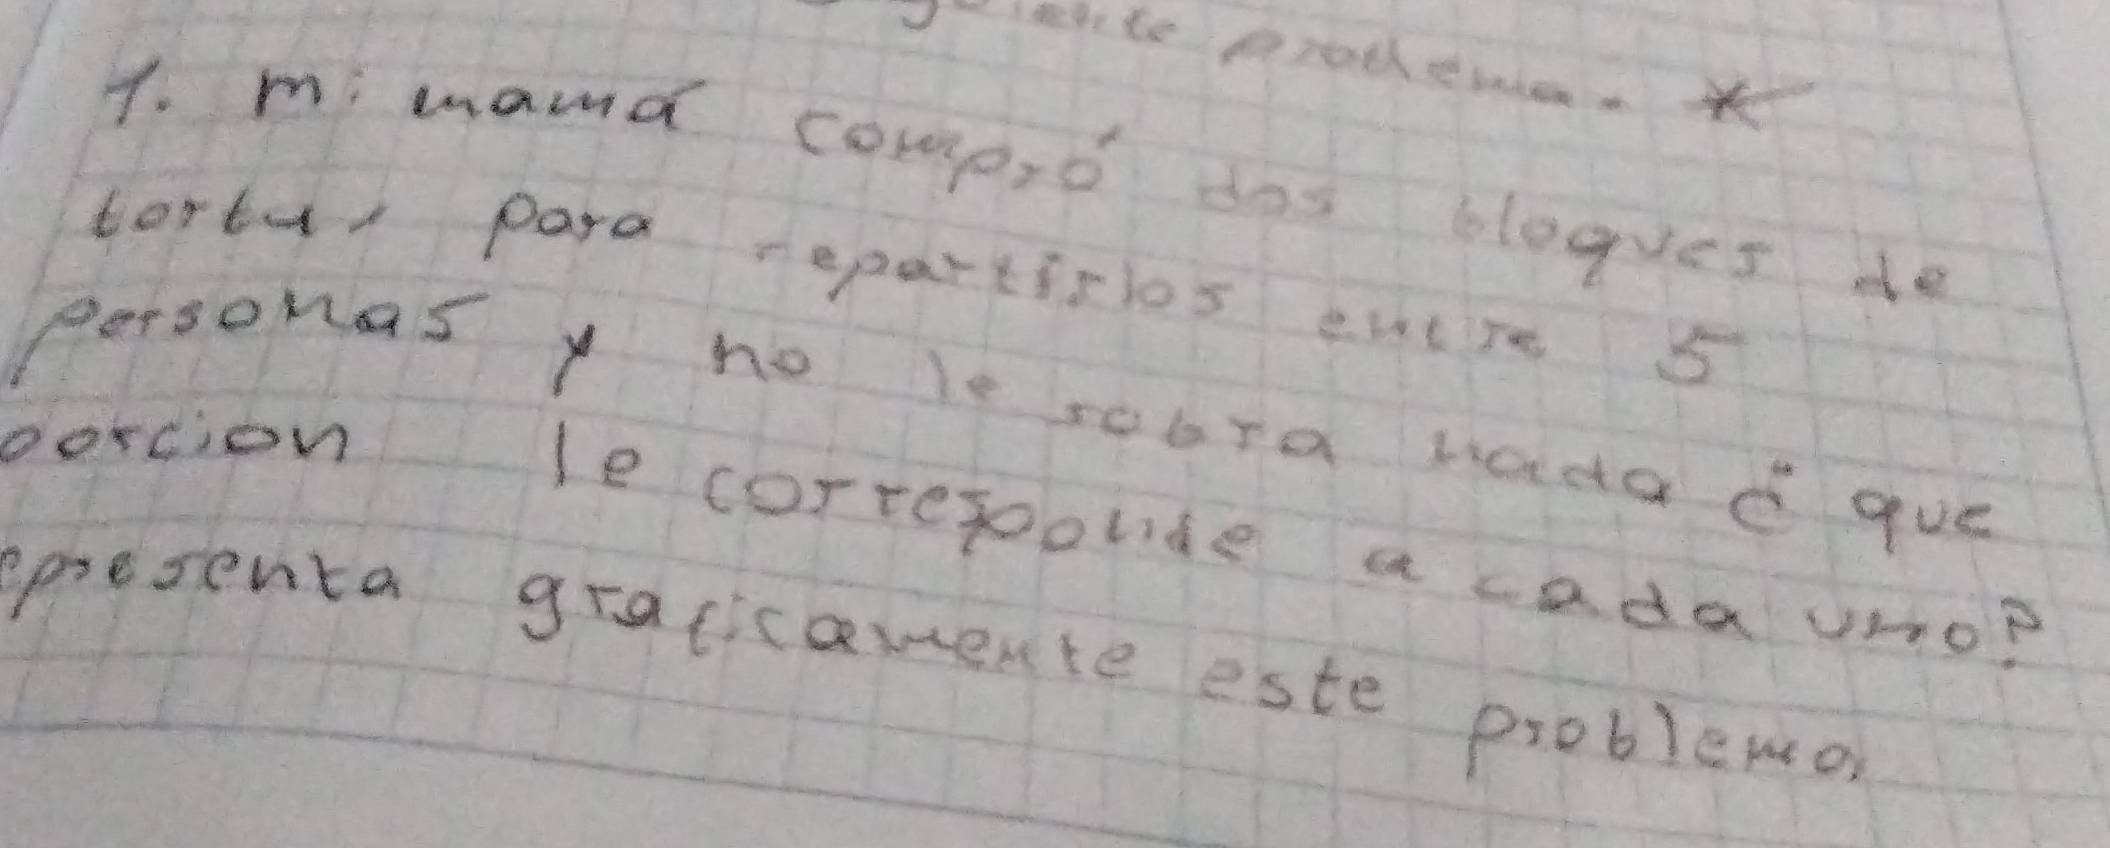 problema. *
1. mi mamá compró dos bloques de
torta, para repartirlos entre 5
personas y no le sobra nada ¿ que
porcion le corresponde a cada uno?
epresenta graficamente este problema